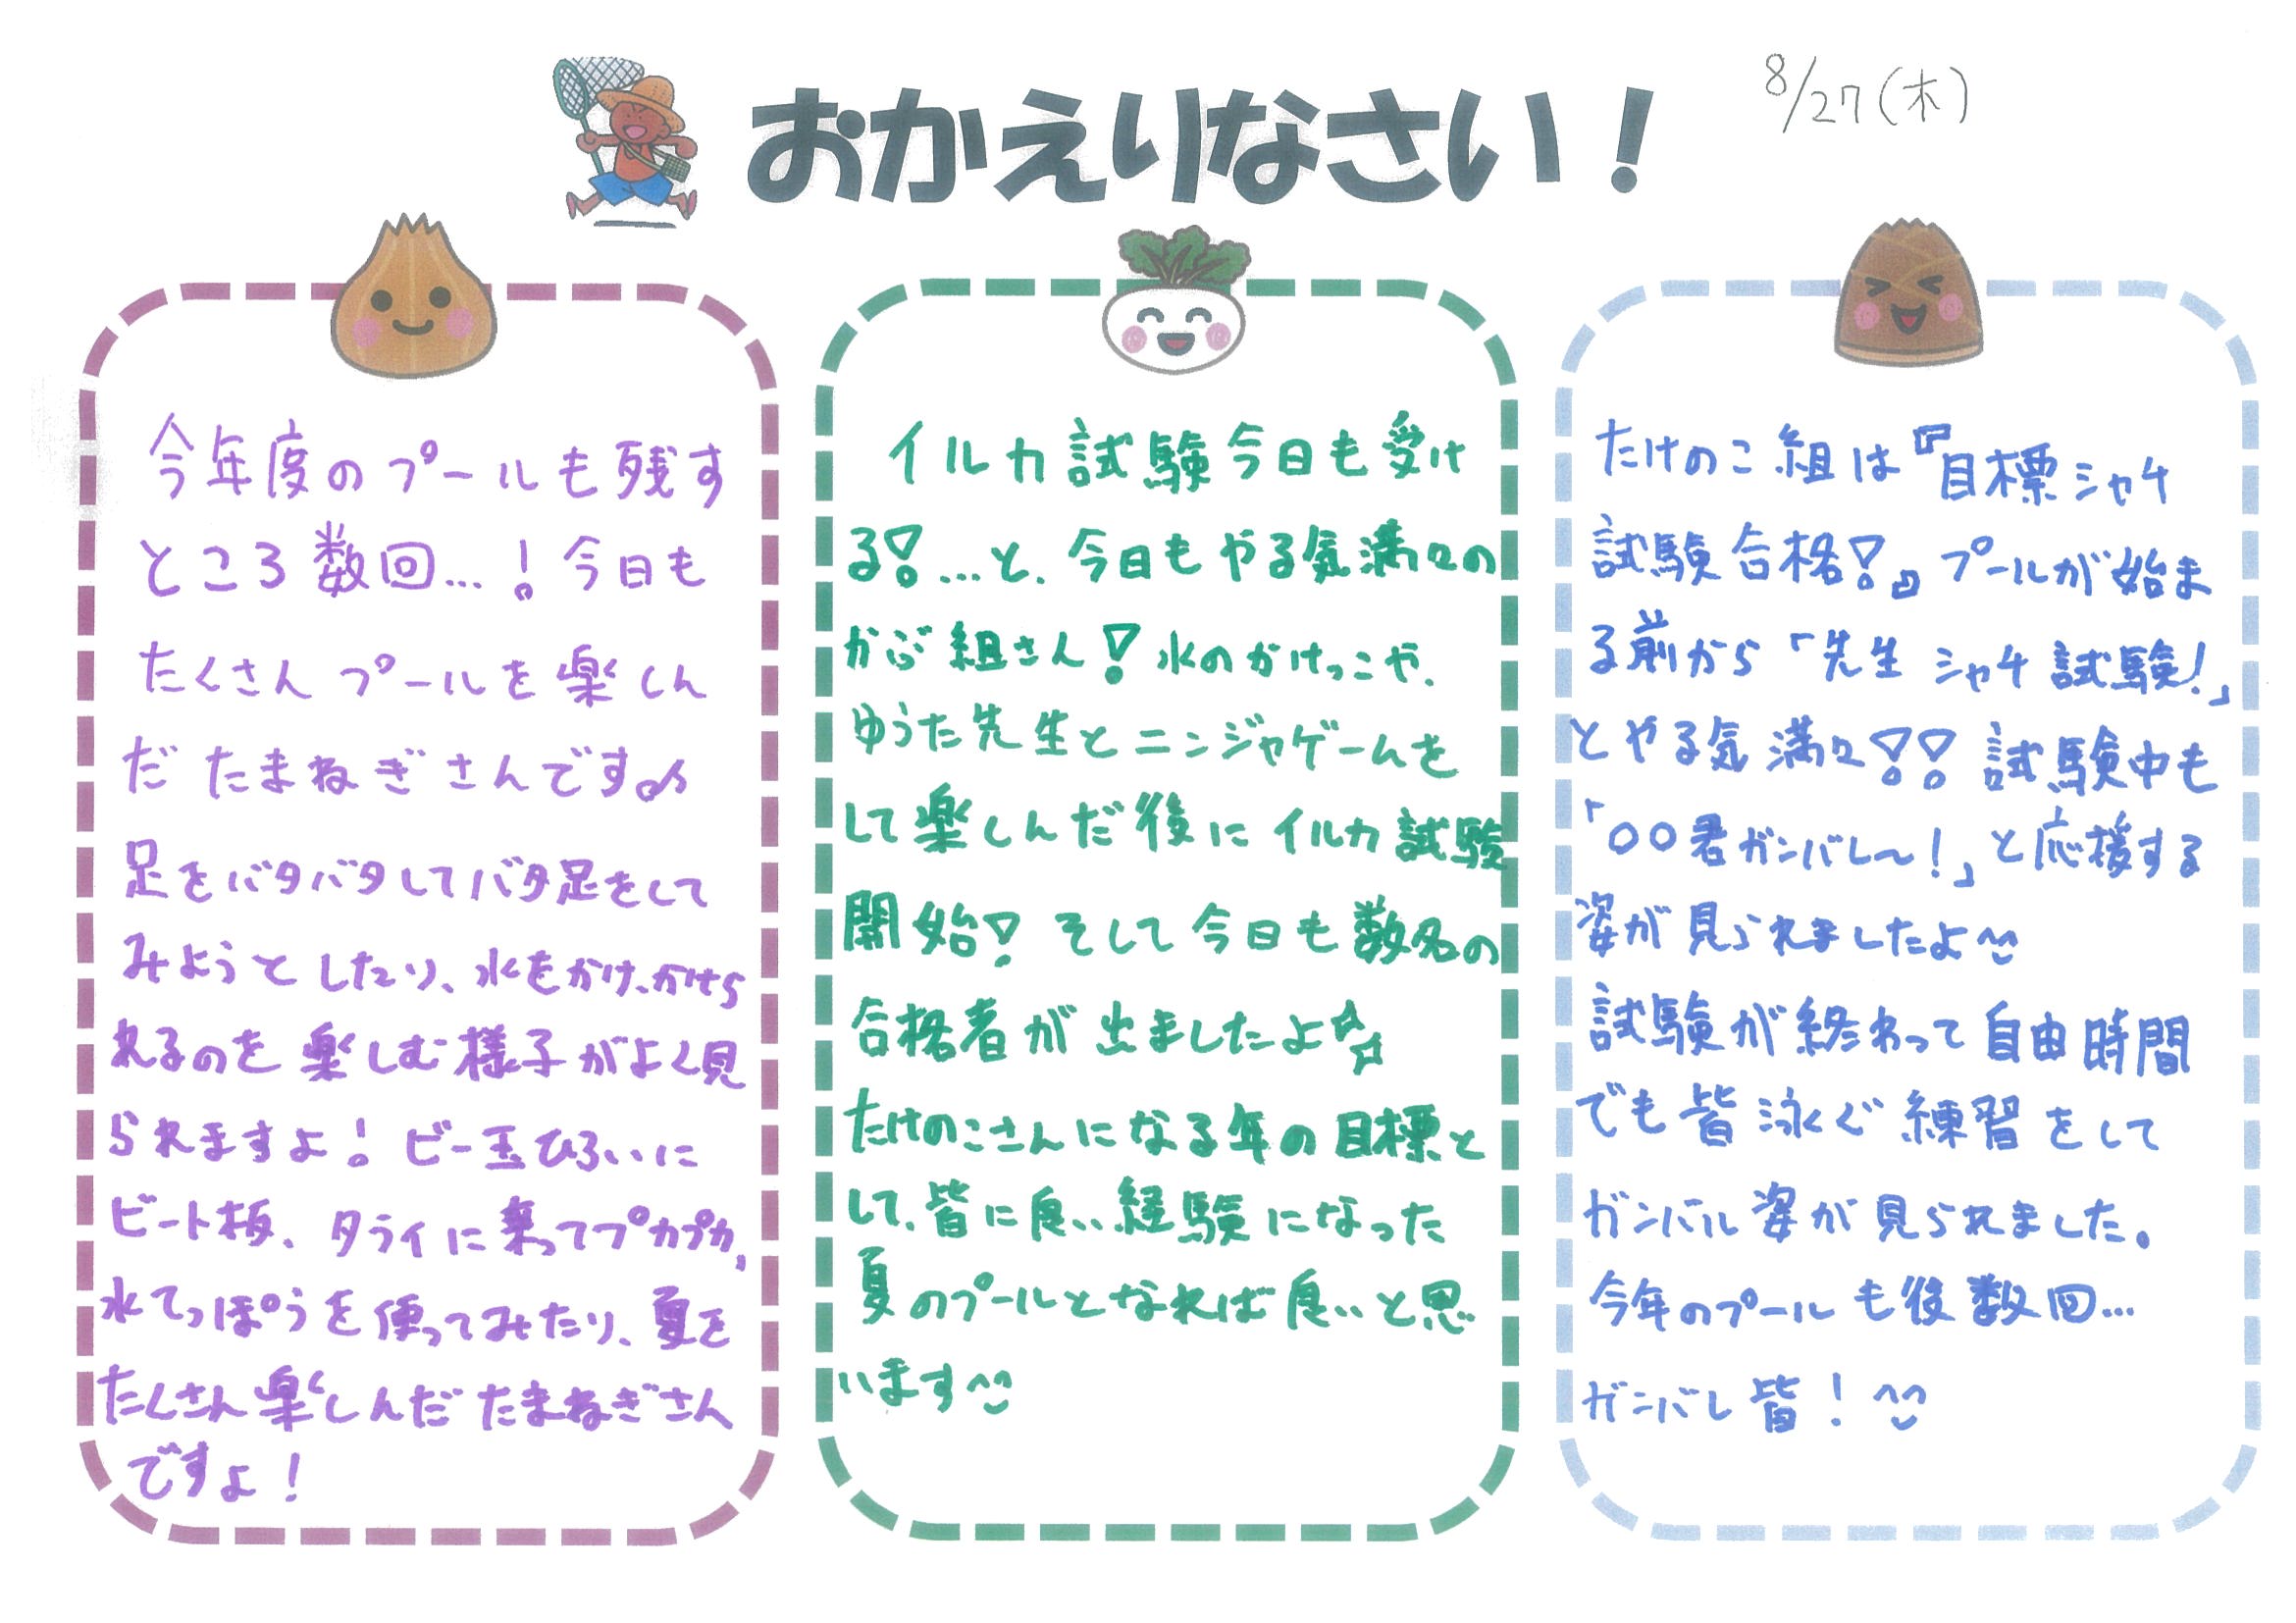 おかえりなさい！
8/27(木)
今年度のプールも残す
ところ数回…！今日も
たくさんプールを楽しん
だたまねぎさんです♪
足をバタバタしてバタ足をして
みようとしたり、水をかけ、かけら
れるのを楽しむ様子がよく見
られますよ！ビー玉ひろいに
ビート板、タライに乗ってプカプカ、
水てっぽうを使ってみたり、夏を
たくさん楽しんだたまねぎさん
ですよ！
イルカ試験今日も受け
る！…と、今日もやる気満々の
かぶ組さん！水のかけっこや、
ゆうた先生とニンジャゲームを
して楽しんだ後にイルカ試験
開始！そして今日も数名の
合格者が出ましたよ☆☆
たけのこさんになる年の目標と
して、皆に良い経験になった
夏のプールとなれば良いと思
います^^
たけのこ組は『目標シャチ
試験合格！』プールが始ま
る前から「先生シャチ試験！」
とやる気満々！！試験中も
「〇〇君ガンバレ〜！」と応援する
姿が見られましたよ^^
試験が終わって自由時間
でも皆泳ぐ練習をして
ガンバル姿が見られました。
今年のプールも後数回…
ガンバレ皆！^^